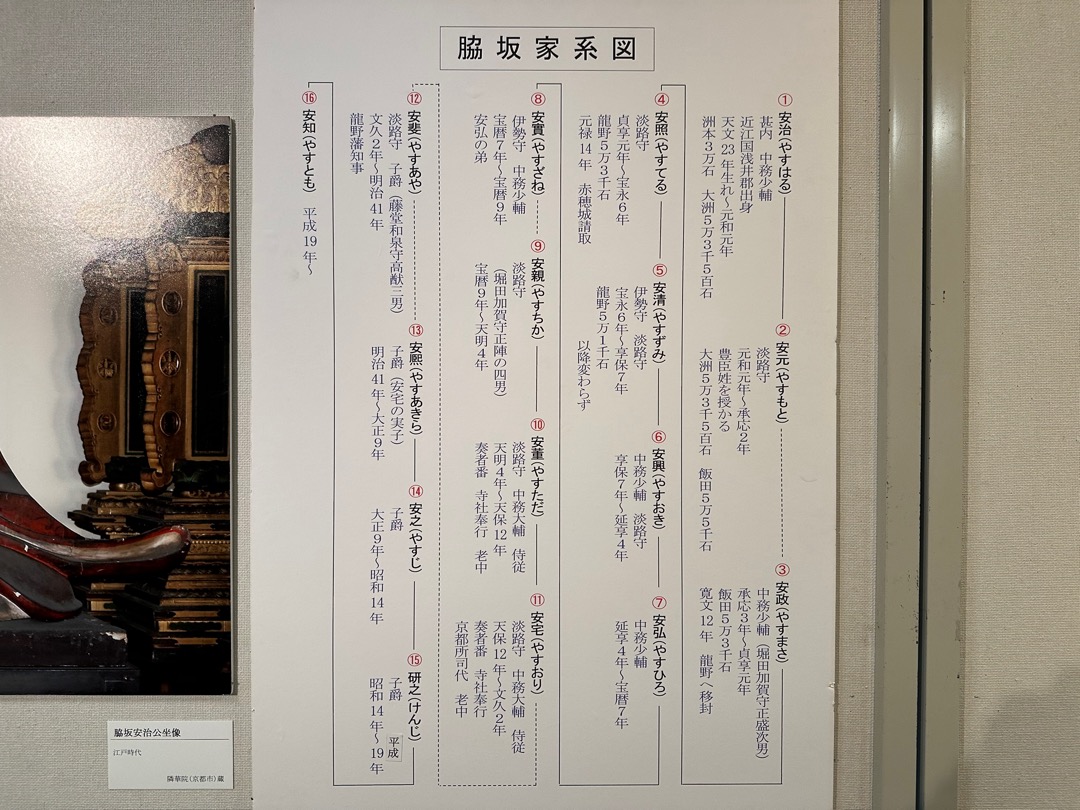 脇坂家系図
①安治(やすはる)
甚内 中務少輔
近江国浅井郡出身
天文23年生れ~元和元年
洲本3万石 大洲5万3千5百石
②安元(やすもと)
淡路守
元和元年~承応2年
豊臣姓を授かる
大洲5万3千5百石 飯田5万5千石
③安政(やすまさ)
中務少輔(堀田加賀守正盛次男)
承応3年~貞享元年
飯田5万3千石
寛文12年 龍野へ移封
④安照(やすてる)
淡路守
貞享元年~宝永6年
龍野5万3千石
元禄14年 赤穂城請取
⑤安清(やすずみ)
伊勢守 淡路守
宝永6年~享保7年
龍野5万1千石
以降変わらず
⑥安興(やすおき)
中務少輔 淡路守
享保7年~延享4年
⑦安弘(やすひろ)
中務少輔
延享4年~宝暦7年
⑧安實(やすざね)
伊勢守 中務少輔
宝暦7年~宝暦9年
安弘の弟
⑨安親(やすちか)
淡路守
(堀田加賀守正陳の四男)
宝暦9年~天明4年
⑩安董(やすただ)
淡路守 中務大輔 侍従
天明4年~天保12年
奏者番 寺社奉行 老中
⑪安宅(やすおり)
淡路守 中務大輔 侍従
天保12年~文久2年
奏者番 寺社奉行
京都所司代 老中
⑫安斐(やすあや)
淡路守 子爵(藤堂和泉守高猷三男)
文久2年~明治41年
龍野藩知事
⑬安熈(やすあきら)
子爵(安宅の実子)
明治41年~大正9年
⑭安之(やすじ)
子爵
大正9年~昭和14年
⑮研之(けんじ)
子爵
昭和14年~平成19年
⑯安知(やすとも) 平成19年~
脇坂安治公坐像
江戸時代
隣華院(京都市)蔵